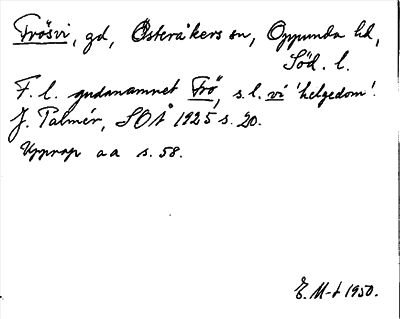 Frösvi, gd, Österåkers sn, Oppunda hd,
Söd. l.
F. l. gudanamnet Frö, s. l. vi 'helgedom'.
J. Palmér, SOÅ 1925 s. 20.
Upprap a a s. 58.
E. M-t 1950.